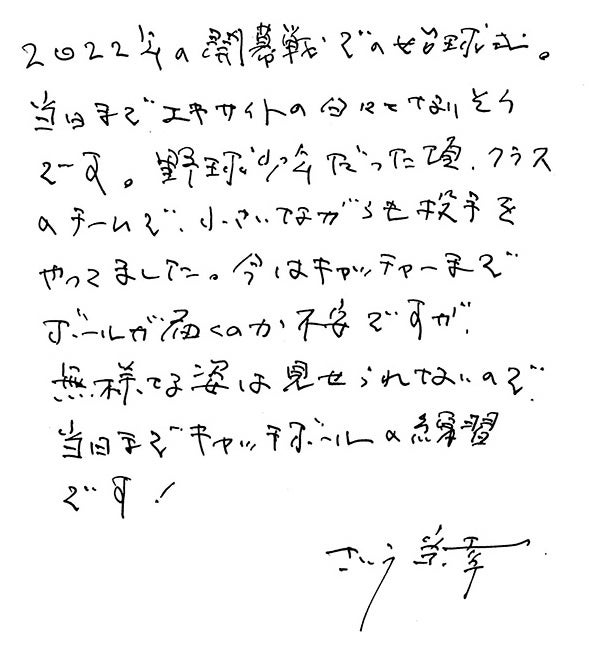 2022年の開幕戦での始球式。
当日までエキサイトの日々となりそう
です。野球少年だった頃、クラス
のチームで、小さいながらも投手を
やってました。今はキャッチャーまで
ボールが届くのか不安ですが、
無様な姿は見せられないので、
当日までキャッチボールの練習
です！
さいとう